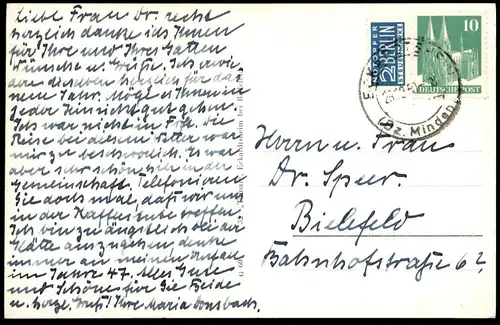 Liebe Frau Dr. recht
herzlich danke ich Ihnen
für Ihre und Ihres Gatten
Wünsche u. Grüße. Ich erwie-
dere dieselben herzlich für das
neue Jahr. Möge es Ihnen in
jeder Hinsicht gut gehen.
Ich war nicht in die
Reise bei diesem Wetter war
mir zu beschwerlich. Es war
aber sehr schön hier in der
Gemeinschaft. Telefonieren
Sie doch mal, daß wir uns
in der Kaffeestube treffen.
Ich bin zu ängstlich bei der
Glätte auszugehen, denke
immer an meinen Unfall
im Jahre 47. Alles Gute
und Schönes für Sie Beide
u. herzl. Gruß! Ihre Maria
NOTOPFER
2 BERLIN
STEUERMARKE
10
DEUTSCHE POST
(Bz. Minden)
Herrn u. Frau
Dr. Speer.
Bielefeld
Bahnhofstraße 62
Eckardtsheim bei